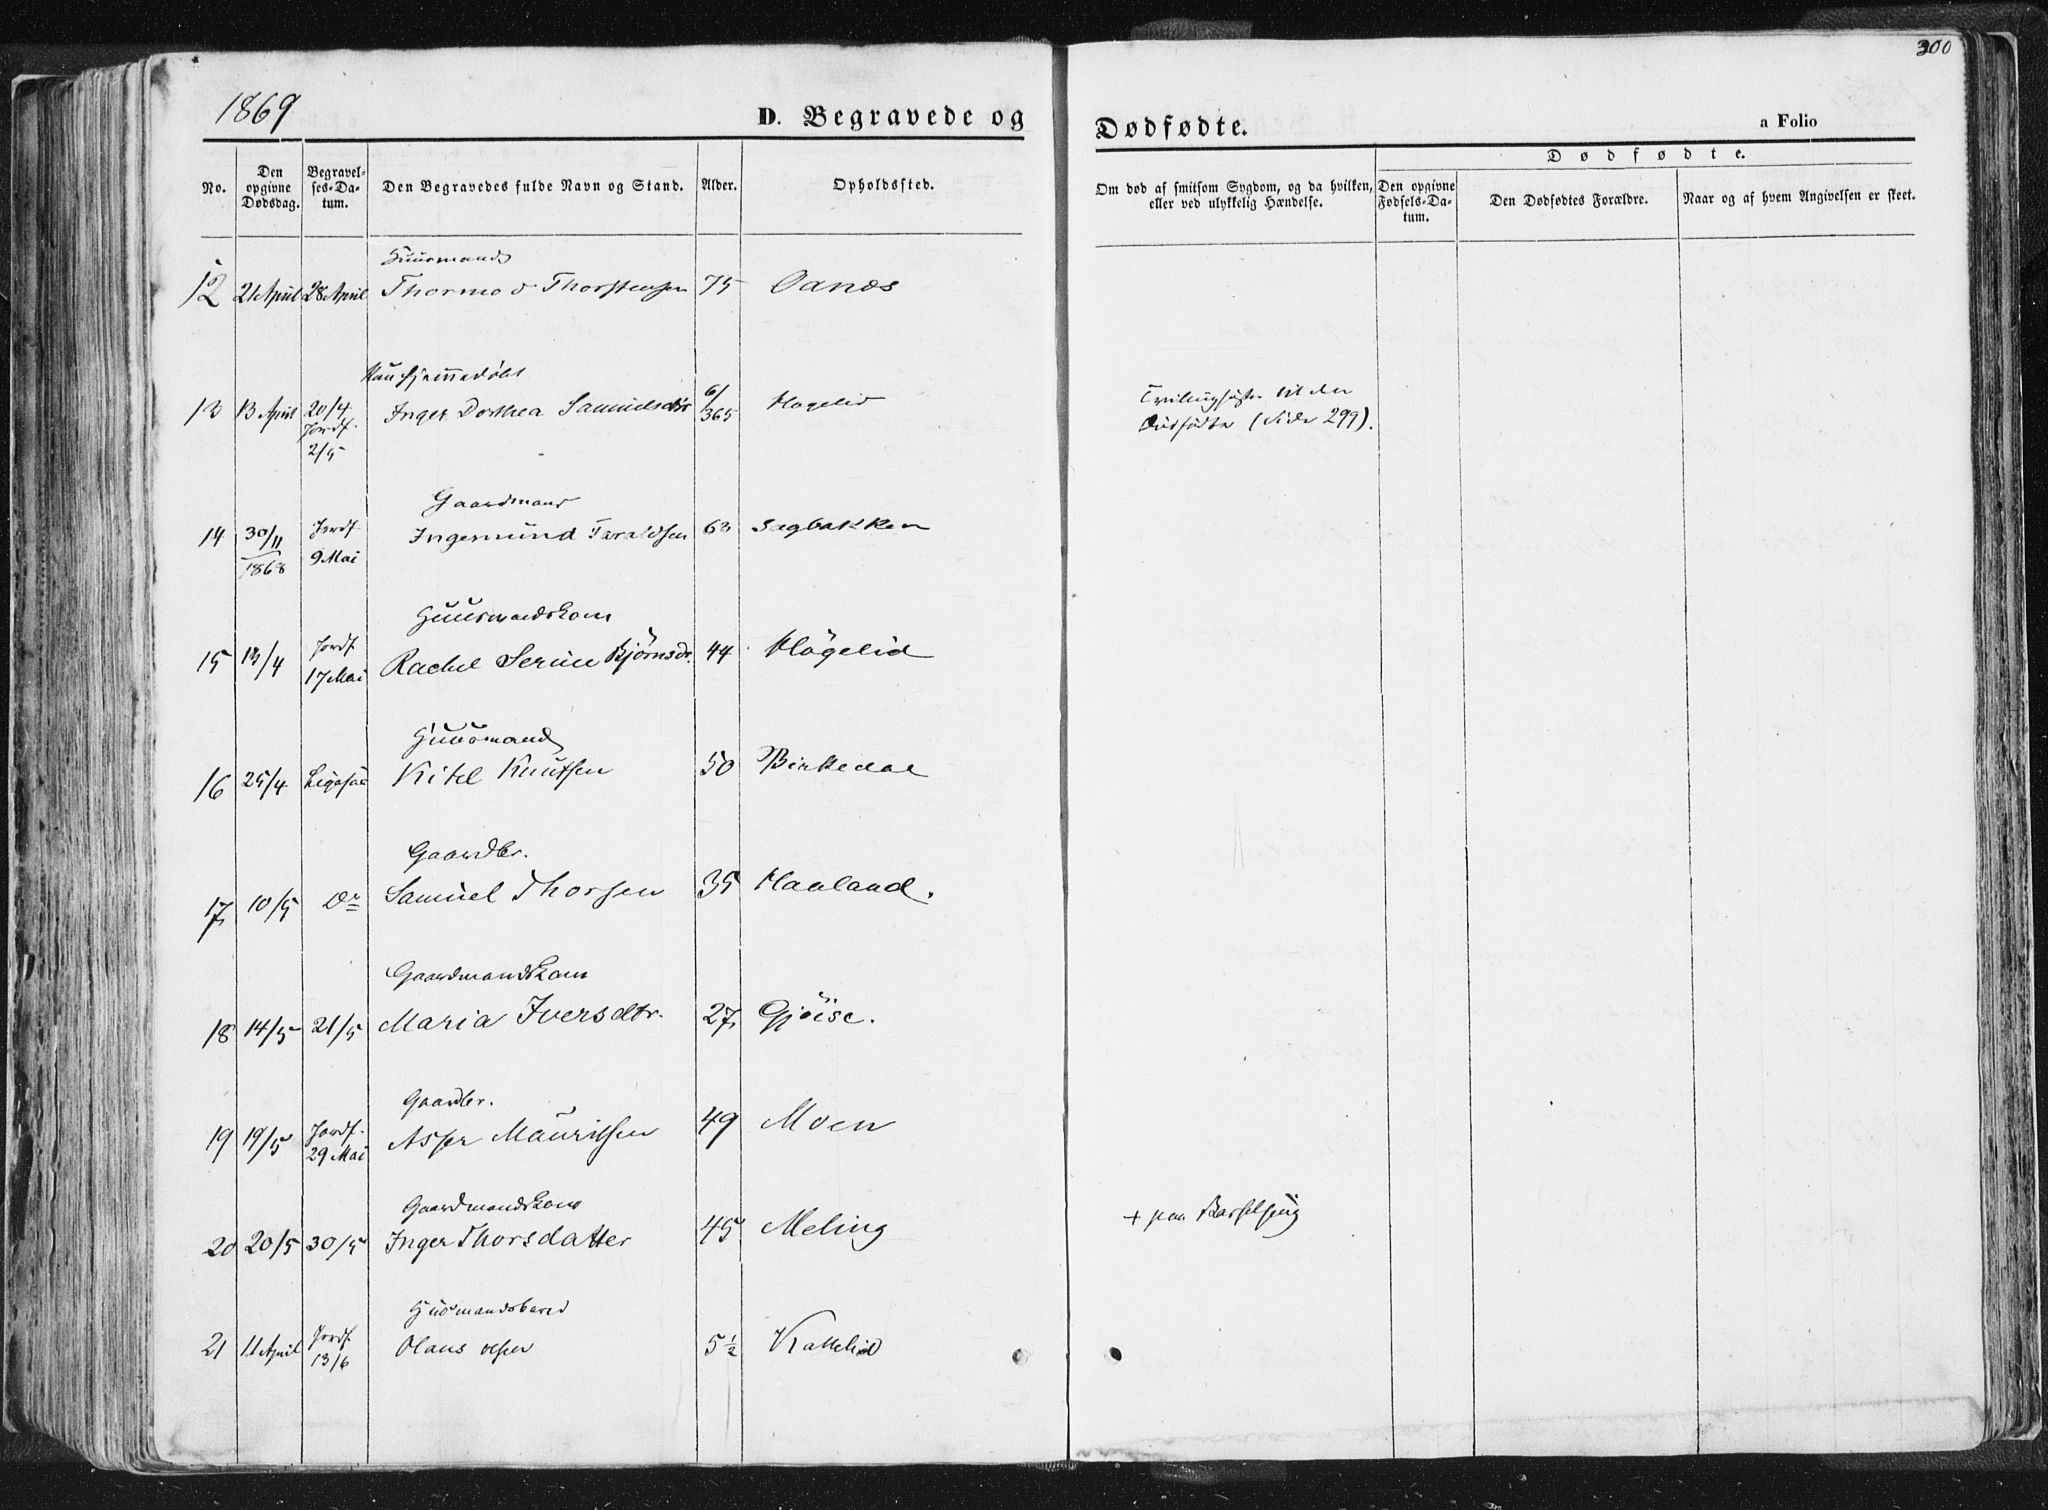 300
1869
D. Begravede og
Dødfødte.
a Folio
No.
Den opgivne Dødsdag.
Begravelses-Datum.
Den Begravedes fulde Navn og Stand.
Alder.
Opholdssted.
Om død af smitsom Sygdom, og da hvilken, eller ved ulykkelig Hændelse.
Dødfødte.
Den opgivne Fødsels-Datum.
Den Dødfødtes Forældre.
Naar og af hvem Angivelsen er skeet.
Huusmand
12 21 April 28 April Thormod Thorstensen 75 Oanæs
hjemmedøbt
13 13 April 20/4 Jordf. 2/5 Inger Dorthea Samuelsdtr 6/365 Høgelid
Tvillingsøster til den
Dødfødte (Side 299).
Gaardmand
14 30/11 1868 Jordf. 9 Mai Ingemund Taraldsen 63 Sagbakken
Huusmandskone
15 13/4 Jordf 17 Mai Rachel Serine Bjørnsdr. 44 Høgelid
Huusmand
16 25/4 Ligesaa Kitel Knutsen 50 Birkedal
Gaardbr.
17 10/5 Do Samuel Thorsen 35 Haaland.
Gaardmandskone
18 14/5 21/5 Maria Iversdtr. 27 Gjöise.
Gaardbr.
19 19/5 Jordf. 29 Mai Asser Mauritsen 49 Moen
Gaardmandskone
20 20/5 30/5 Inger Thorsdatter 45 Meling
+ paa Barselseng
Husmandsbarn
21 11 April Jordf. 13/6 Olaus Olsen 5½ Kattelid